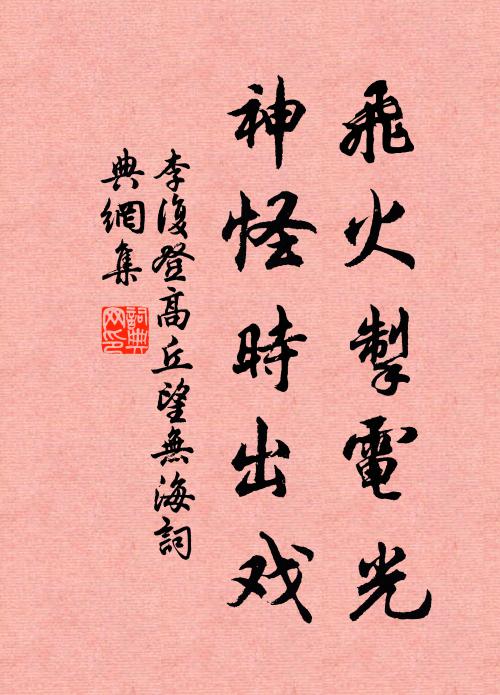 飛火掣電光
神怪時出戏
李復登高丘望無海詞
典網集
詞典
网印